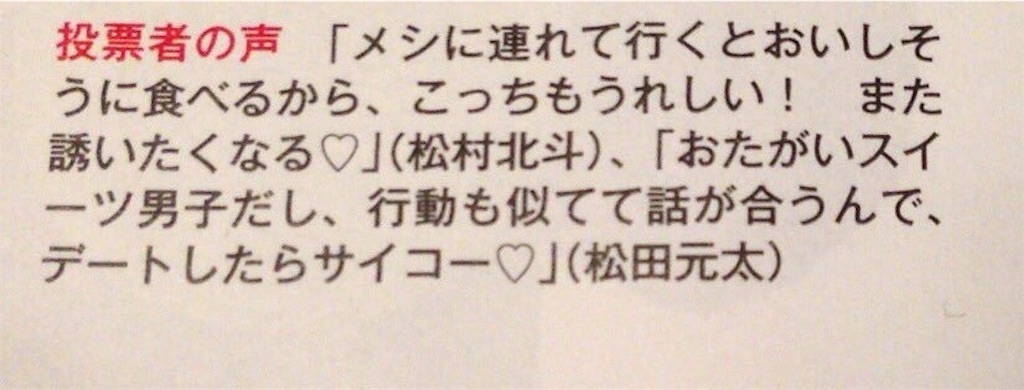 投票者の声　「メシに連れて行くとおいしそ
うに食べるから、こっちもうれしい！　また
誘いたくなる♡」（松村北斗）、「おたがいスイ
ーツ男子だし、行動も似てて話が合うんで、
デートしたらサイコー♡」（松田元太）